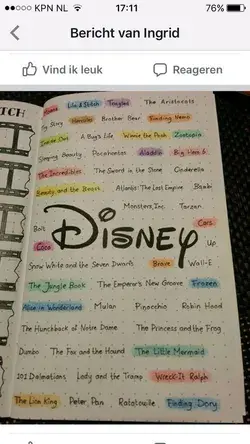 KPN NL 17:11 76%
Bericht van Ingrid
Vind ik leuk Reageren
TCH
Lilo & Stitch Tangled The Aristocats
Toy Story Brother Bear Finding Nemo
Inside Out A Bug's Life Winnie the Pooh Zootopia
Sleeping Beauty Pocahontas Aladdin Big Hero 6
The Incredibles The Sword in the Stone Cinderella
Beauty and the Beast Atlantis: The Lost Empire Bambi
Monsters, Inc. Tarzan
Bolt Cars
Disney
Coco Up
Snow White and the Seven Dwarfs Brave Wall-E
The Jungle Book The Emperor's New Groove Frozen
Alice in Wonderland Mulan Pinocchio Robin Hood
The Hunchback of Notre Dame The Princess and the Frog
Dumbo The Fox and the Hound The Little Mermaid
101 Dalmatians Lady and the Tramp Wreck-It Ralph
The Lion King Peter Pan Ratatouille Finding Dory